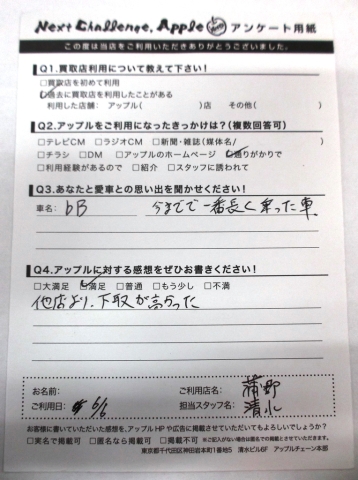 Next Challenge. Apple アンケート用紙
この度は当店をご利用いただきありがとうございました。
Q1.買取店利用について教えて下さい!
□買取店を初めて利用
□過去に買取店を利用したことがある
利用した店舗: アップル( )店 その他( )
Q2.アップルをご利用になったきっかけは?(複数回答可)
□テレビCM □ラジオCM □新聞・雑誌(媒体名/ )
□チラシ □DM □アップルのホームページ □通りがかりで
□利用経験があるので □紹介 □スタッフに誘われて
Q3.あなたと愛車との思い出を聞かせください!
車名: bB 今までで一番長く乗った車
Q4.アップルに対する感想をぜひお書きください!
□大満足 □満足 □普通 □もう少し □不満
他店より、下取が高かった
お名前: ご利用店名: 蒲野
ご利用日: 6/6 担当スタッフ名: 清水
お客様に書いていただいた感想を、アップルHPや広告に掲載させていただいてもよろしいでしょうか?
□実名で掲載可 □匿名なら掲載可 □掲載不可 ※ご記入がない場合は匿名での掲載とさせていただきます。
東京都千代田区神田岩本町1番地5 清水ビル6F アップルチェーン本部